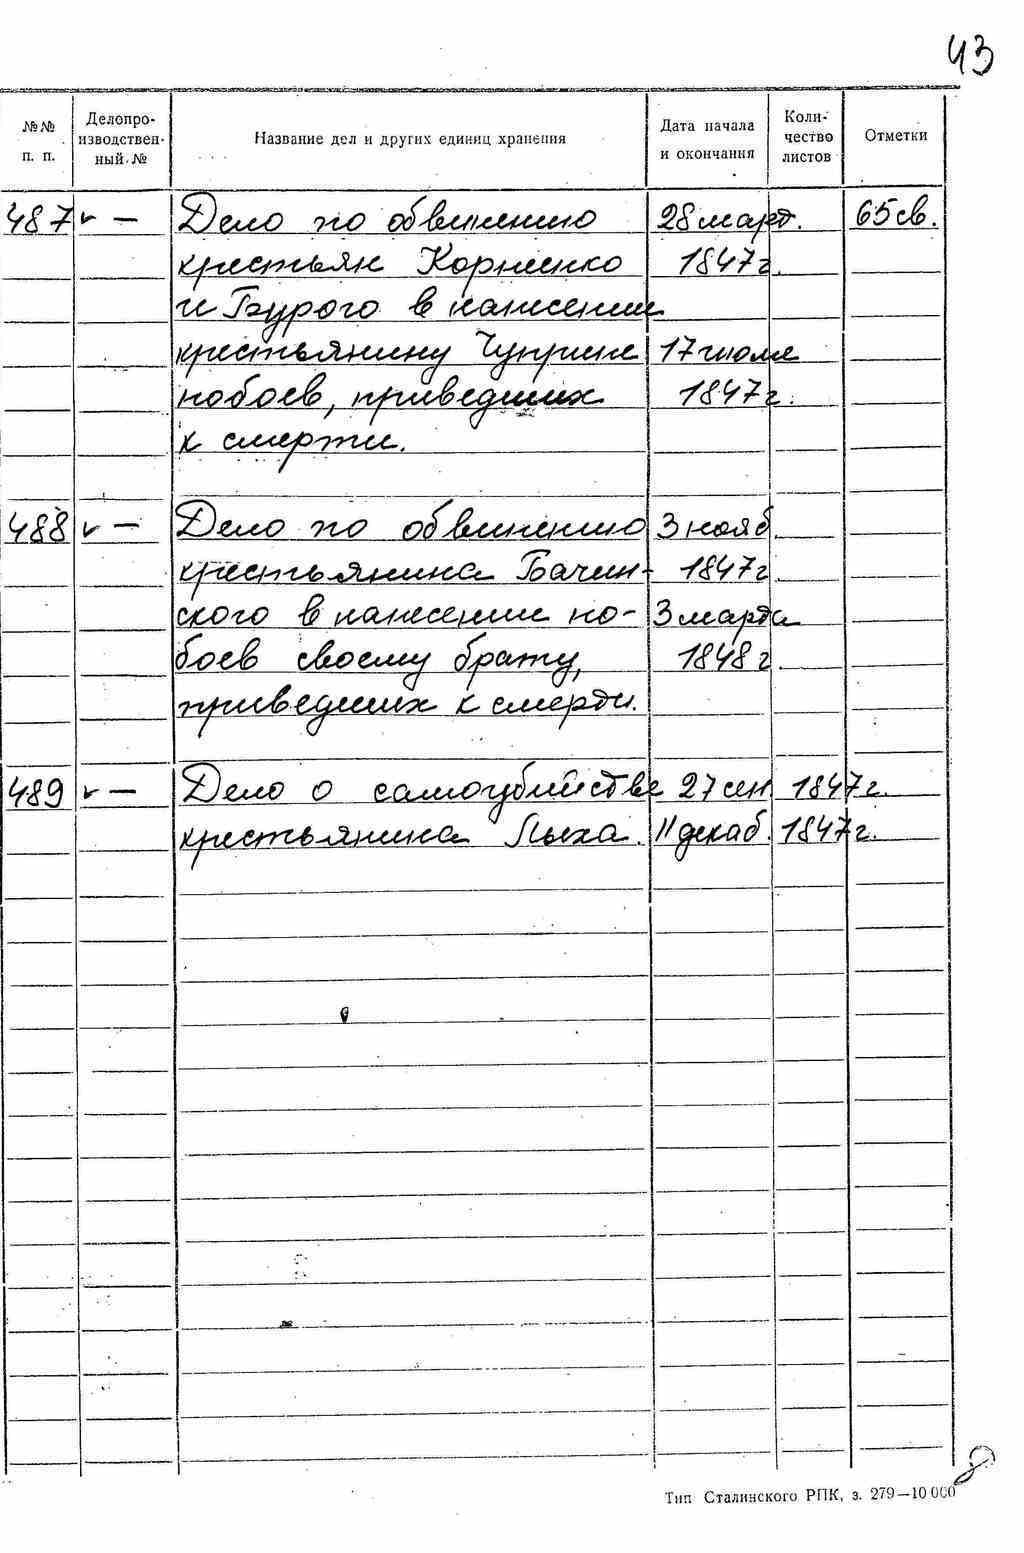 43
№№ п. п. Делопро- изводствен- ный № Название дел и других единиц хранения Дата начала и окончания Коли- чество листов Отметки
487 ✓ — Дело по обвинению 28 март. 65 св.
крестьян Корненко 1847 г.
и Бурого в нанесении
крестьянину Чуприне 17 июля
побоев, приведших 1847 г.
к смерти.
488 ✓ — Дело по обвинению 3 нояб.
крестьянина Бачин- 1847 г.
ского в нанесении по- 3 марта
боев своему брату, 1848 г.
приведших к смерти.
489 ✓ — Дело о самоубийстве 27 сен. 1847 г.
крестьянина Лыха. 11 декаб. 1847 г.
Тип Сталинского РПК, з. 279—10 000